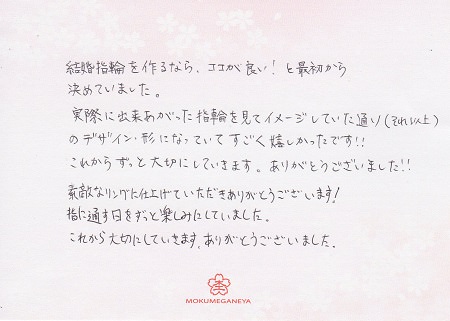 結婚指輪を作るなら、ココが良い！と最初から
決めていました。
実際に出来あがった指輪を見てイメージしていた通り（それ以上）
のデザイン・形になっていてすごく嬉しかったです！！
これからずっと大切にしていきます。ありがとうございました！！
素敵なリングに仕上げていただきありがとうございます！
指に通す日をずっと楽しみにしていました。
これから大切にしていきます。ありがとうございました。
MOKUMEGANEYA